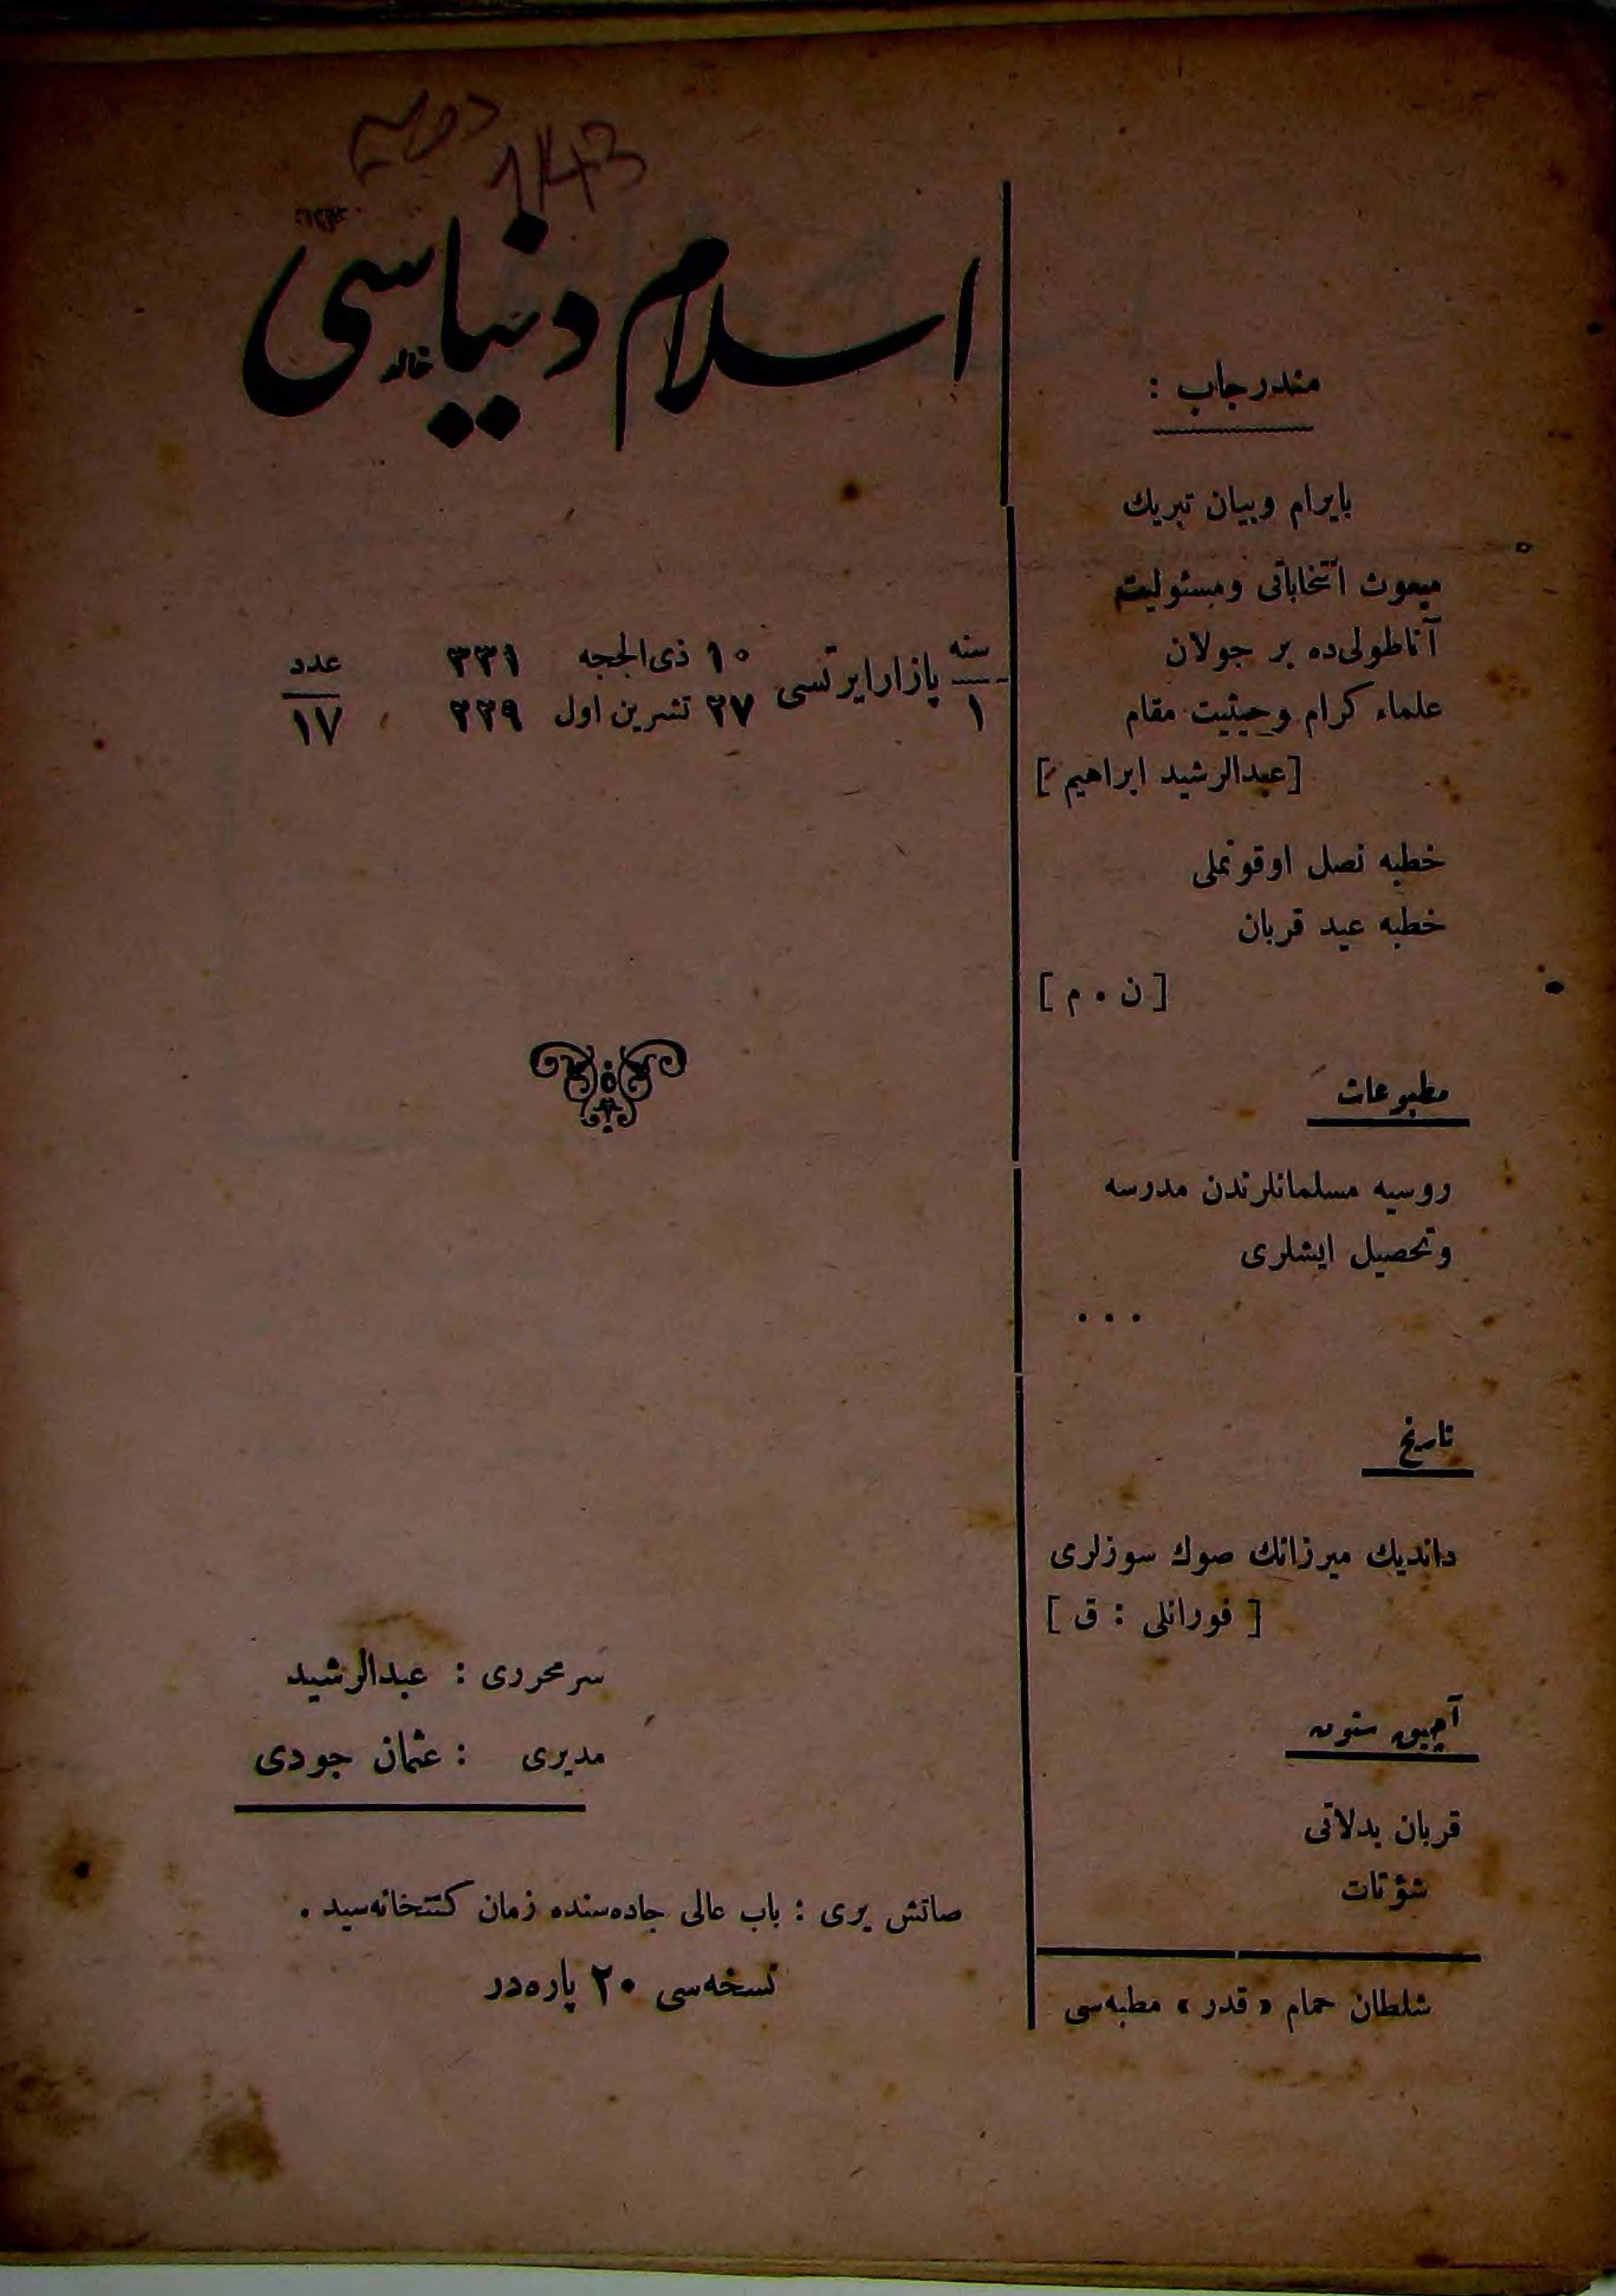 143
اسلام دنیاسی
خالد
سنه ١
پازار ایرتسی
١٠ ذی‌الحجه ٣٣١
٢٧ تشرین اول ٢٢٩
عدد ١٧
مندرجاب :
بایرام وبیان تبریك
مبعوث انتخاباتی ومسئولیت
آناطولی‌ده بر جولان
علماء كرام وحیثیت مقام
[عبدالرشید ابراهیم]
خطبه نصل اوقونملی
خطبه عید قربان
[ن . م]
مطبوعات
روسیه مسلمانلرندن مدرسه
وتحصیل ایشلری
...
تاریخ
داندیك میرزانك صوك سوزلری
[ فورانلی : ق ]
آچیق ستون
قربان بدلاتی
شؤنات
شلطان حمام « قدر » مطبه‌سی
سر محرری : عبدالرشید
مدیری : عثمان جودی
صاتش یری : باب عالی جاده‌سنده زمان كتتخانه‌سید .
نسخه‌سی ٢٠ پاره‌در